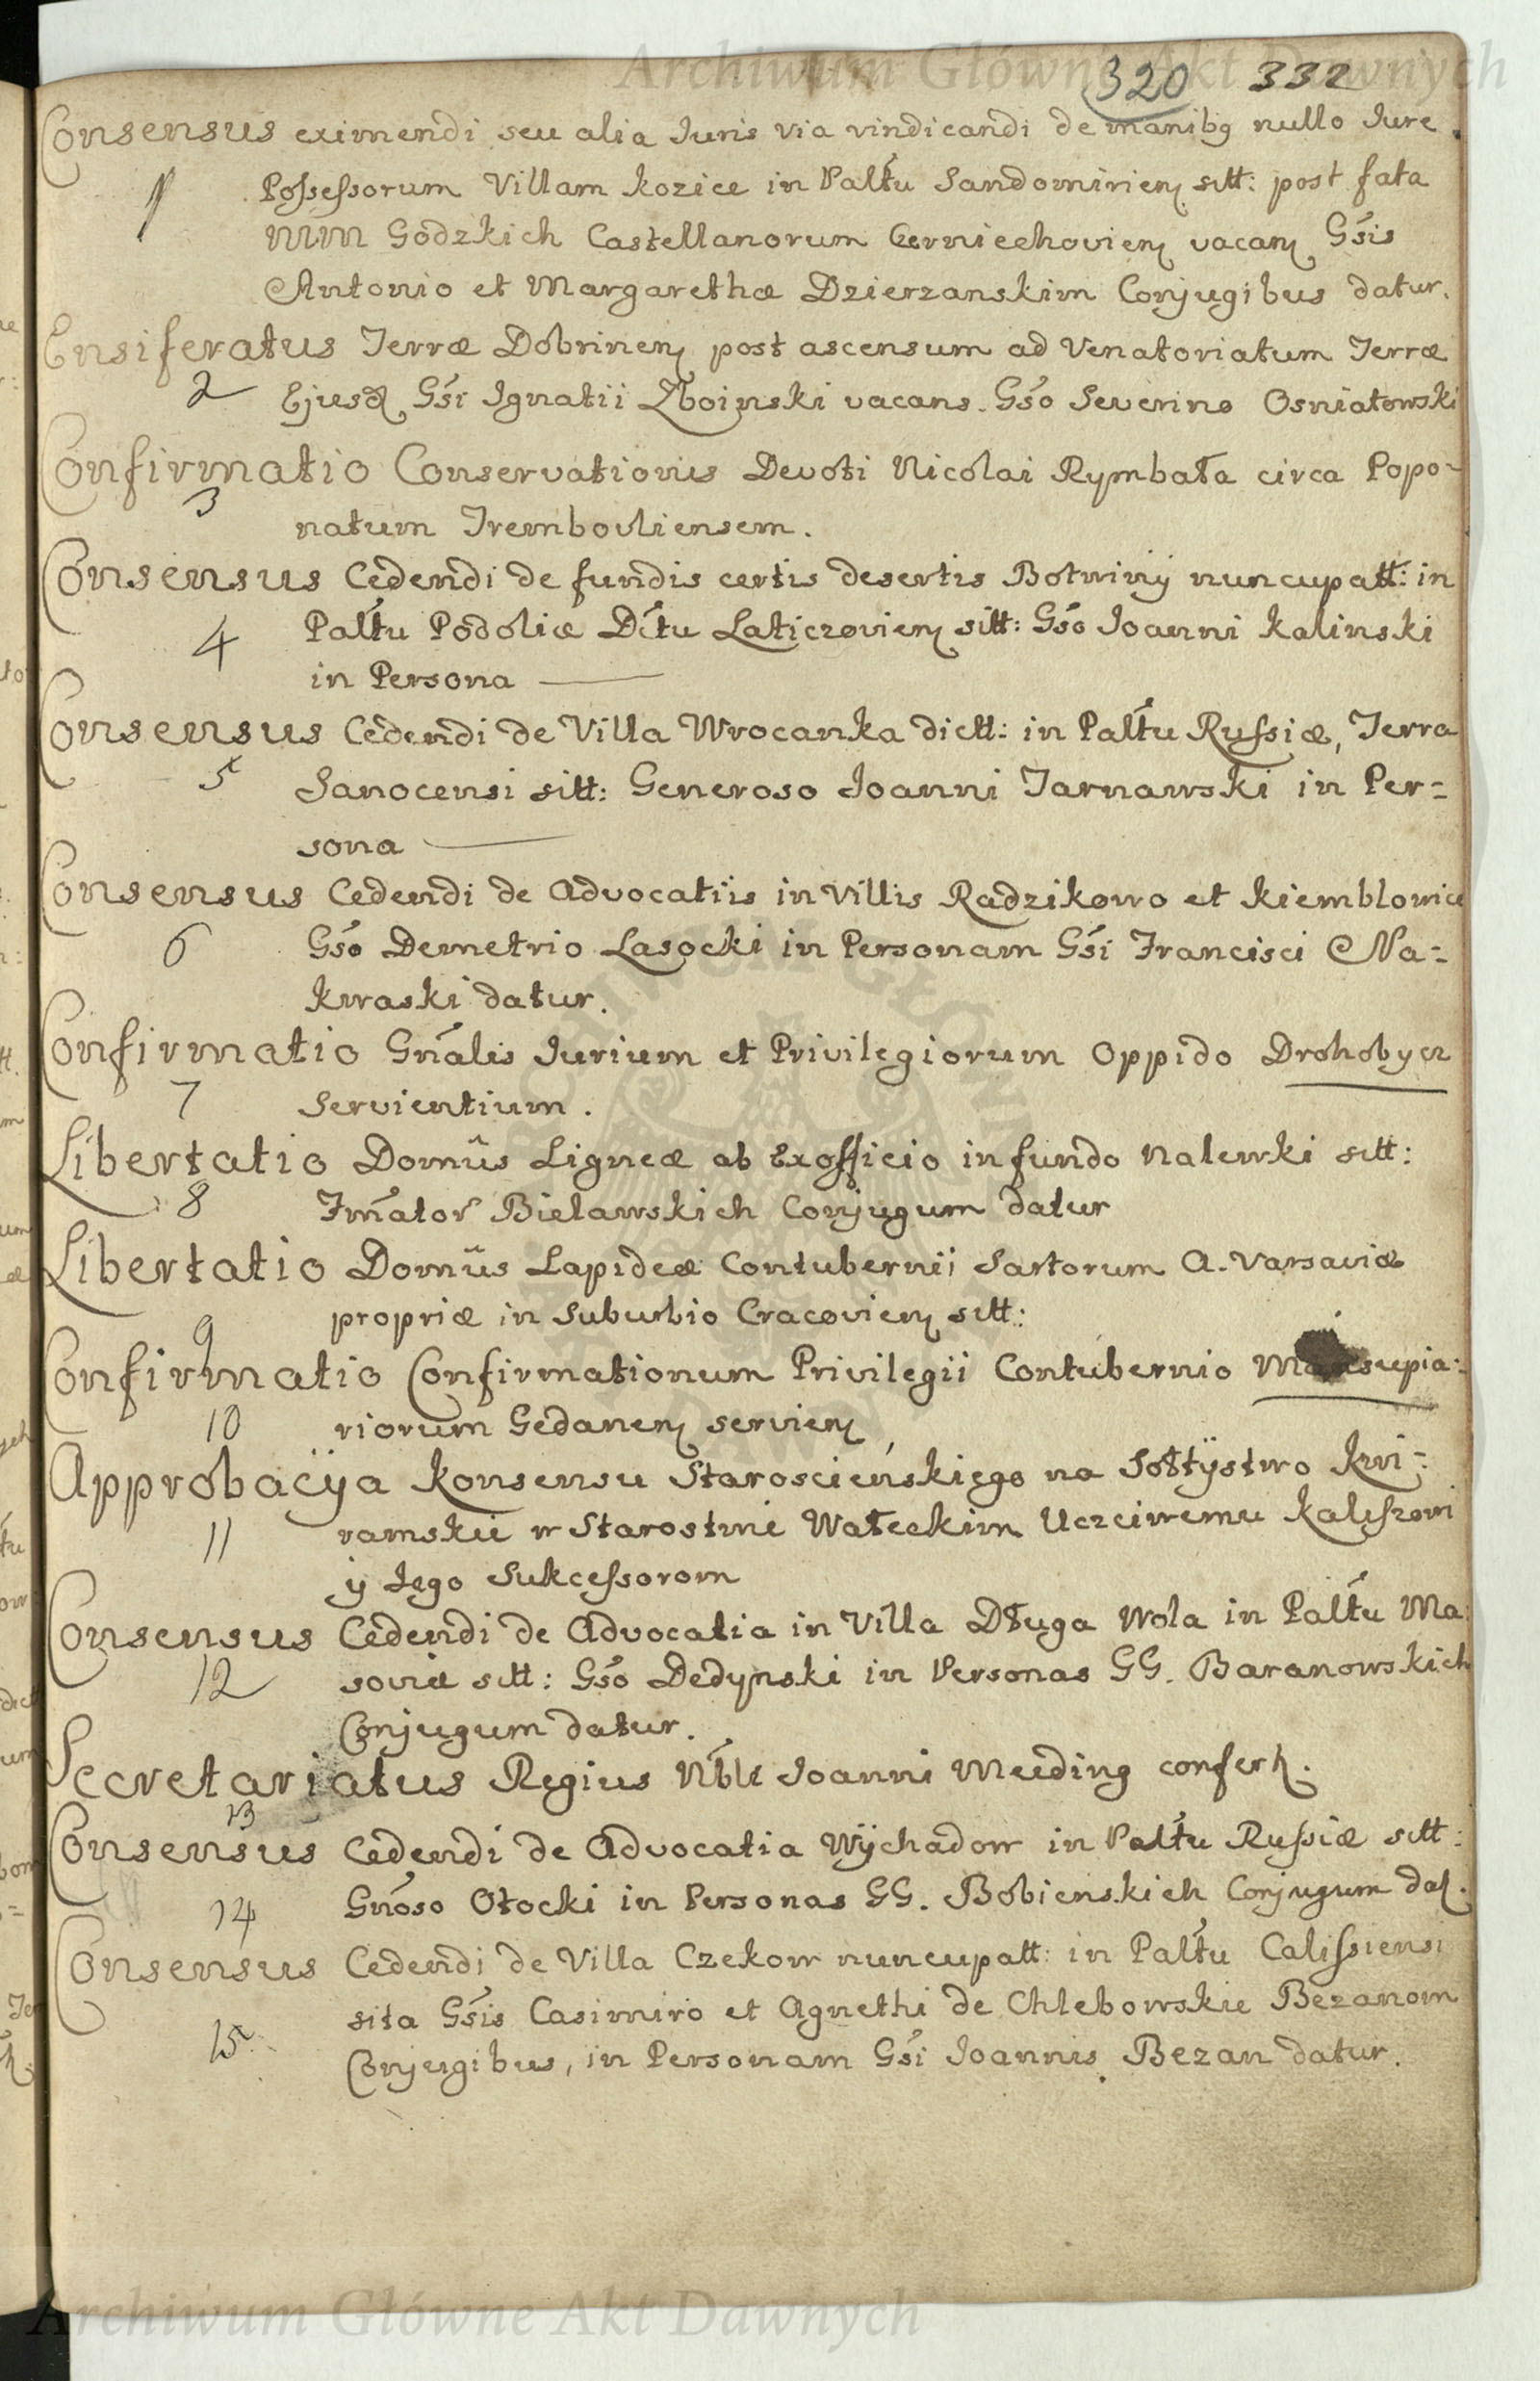 Archiwum Główne Akt Dawnych
320 332
Consensus eximendi seu alia Juris via vindicandi de manibg nullo Jure
1 Possessorum Villam Kozice in Paltu Sandomirien sitt: post fata
MM Godzkich Castellanorum Czerniechovien vacan Gsis
Antonio et Margarethæ Dzierzanskim Conjugibus datur.
Ensiferatus Terræ Dobrinen post ascensum ad Venatoriatum Terræ
2 Ejusd Gsi Ignatii Zboinski vacans. Gso Severino Osniatowski
Confirmatio Conservationis Devoti Nicolai Rymbała circa Popo-
3 natum Trembovliensem.
Consensus Cedendi de fundis certis desertis Botwiny nuncupatt: in
4 Paltu Podoliæ Dttu Laticzovien sitt: Gso Joanni Kalinski
in Persona
Consensus Cedendi de Villa Wrocanka dictt: in Paltu Russiæ, Terra
5 Sanocensi sitt: Generoso Joanni Tarnawski in Per=
sona
Consensus Cedendi de Advocatiis in Villis Radzikowo et Kiemblowice
6 Gso Demetrio Lasocki in Personam Gsi Francisci Na=
kwaski datur.
Confirmatio Gnalis Jurium et Privilegiorum Oppido Drohobycz
7 Servientium.
Libertatio Domûs Ligneæ ab Exofficio in fundo Nalewki sitt:
8 Fmator Bielawskich Conjugum datur
Libertatio Domûs Lapideæ Contubernii Sartorum A. Varsaviæ
9 propriæ in Suburbio Cracovien sitt:
Confirmatio Confirmationum Privilegii Contubernio Marsupia=
10 riorum Gedanen servien
Approbacÿa Konsensu Starościeńskiego na Sołtÿstwo Kwi=
11 ramskie w Starostwie Wałeckim Uczciwemu Kaliszowi
ÿ Jego Sukcessorom
Consensus Cedendi de Advocatia in Villa Długa Wola in Paltu Ma:
12 soviæ sitt: Gso Dedynski in Personas GG. Baranowskich
Conjugum datur.
Secretariatus Regius Nbli Joanni Meuding confert.
13
Consensus Cedendi de Advocatia Wÿchadow in Paltu Russiæ sitt:
14 Gnoso Otocki in Personas GG. Bobienskich Conjugum dat.
Consensus Cedendi de Villa Czekow nuncupatt: in Paltu Calissiensi
sita Gsis Casimiro et Agnethi de Chlebowskie Bezanom
15 Conjugibus, in Personam Gsi Joannis Bezan datur.
Archiwum Główne Akt Dawnych